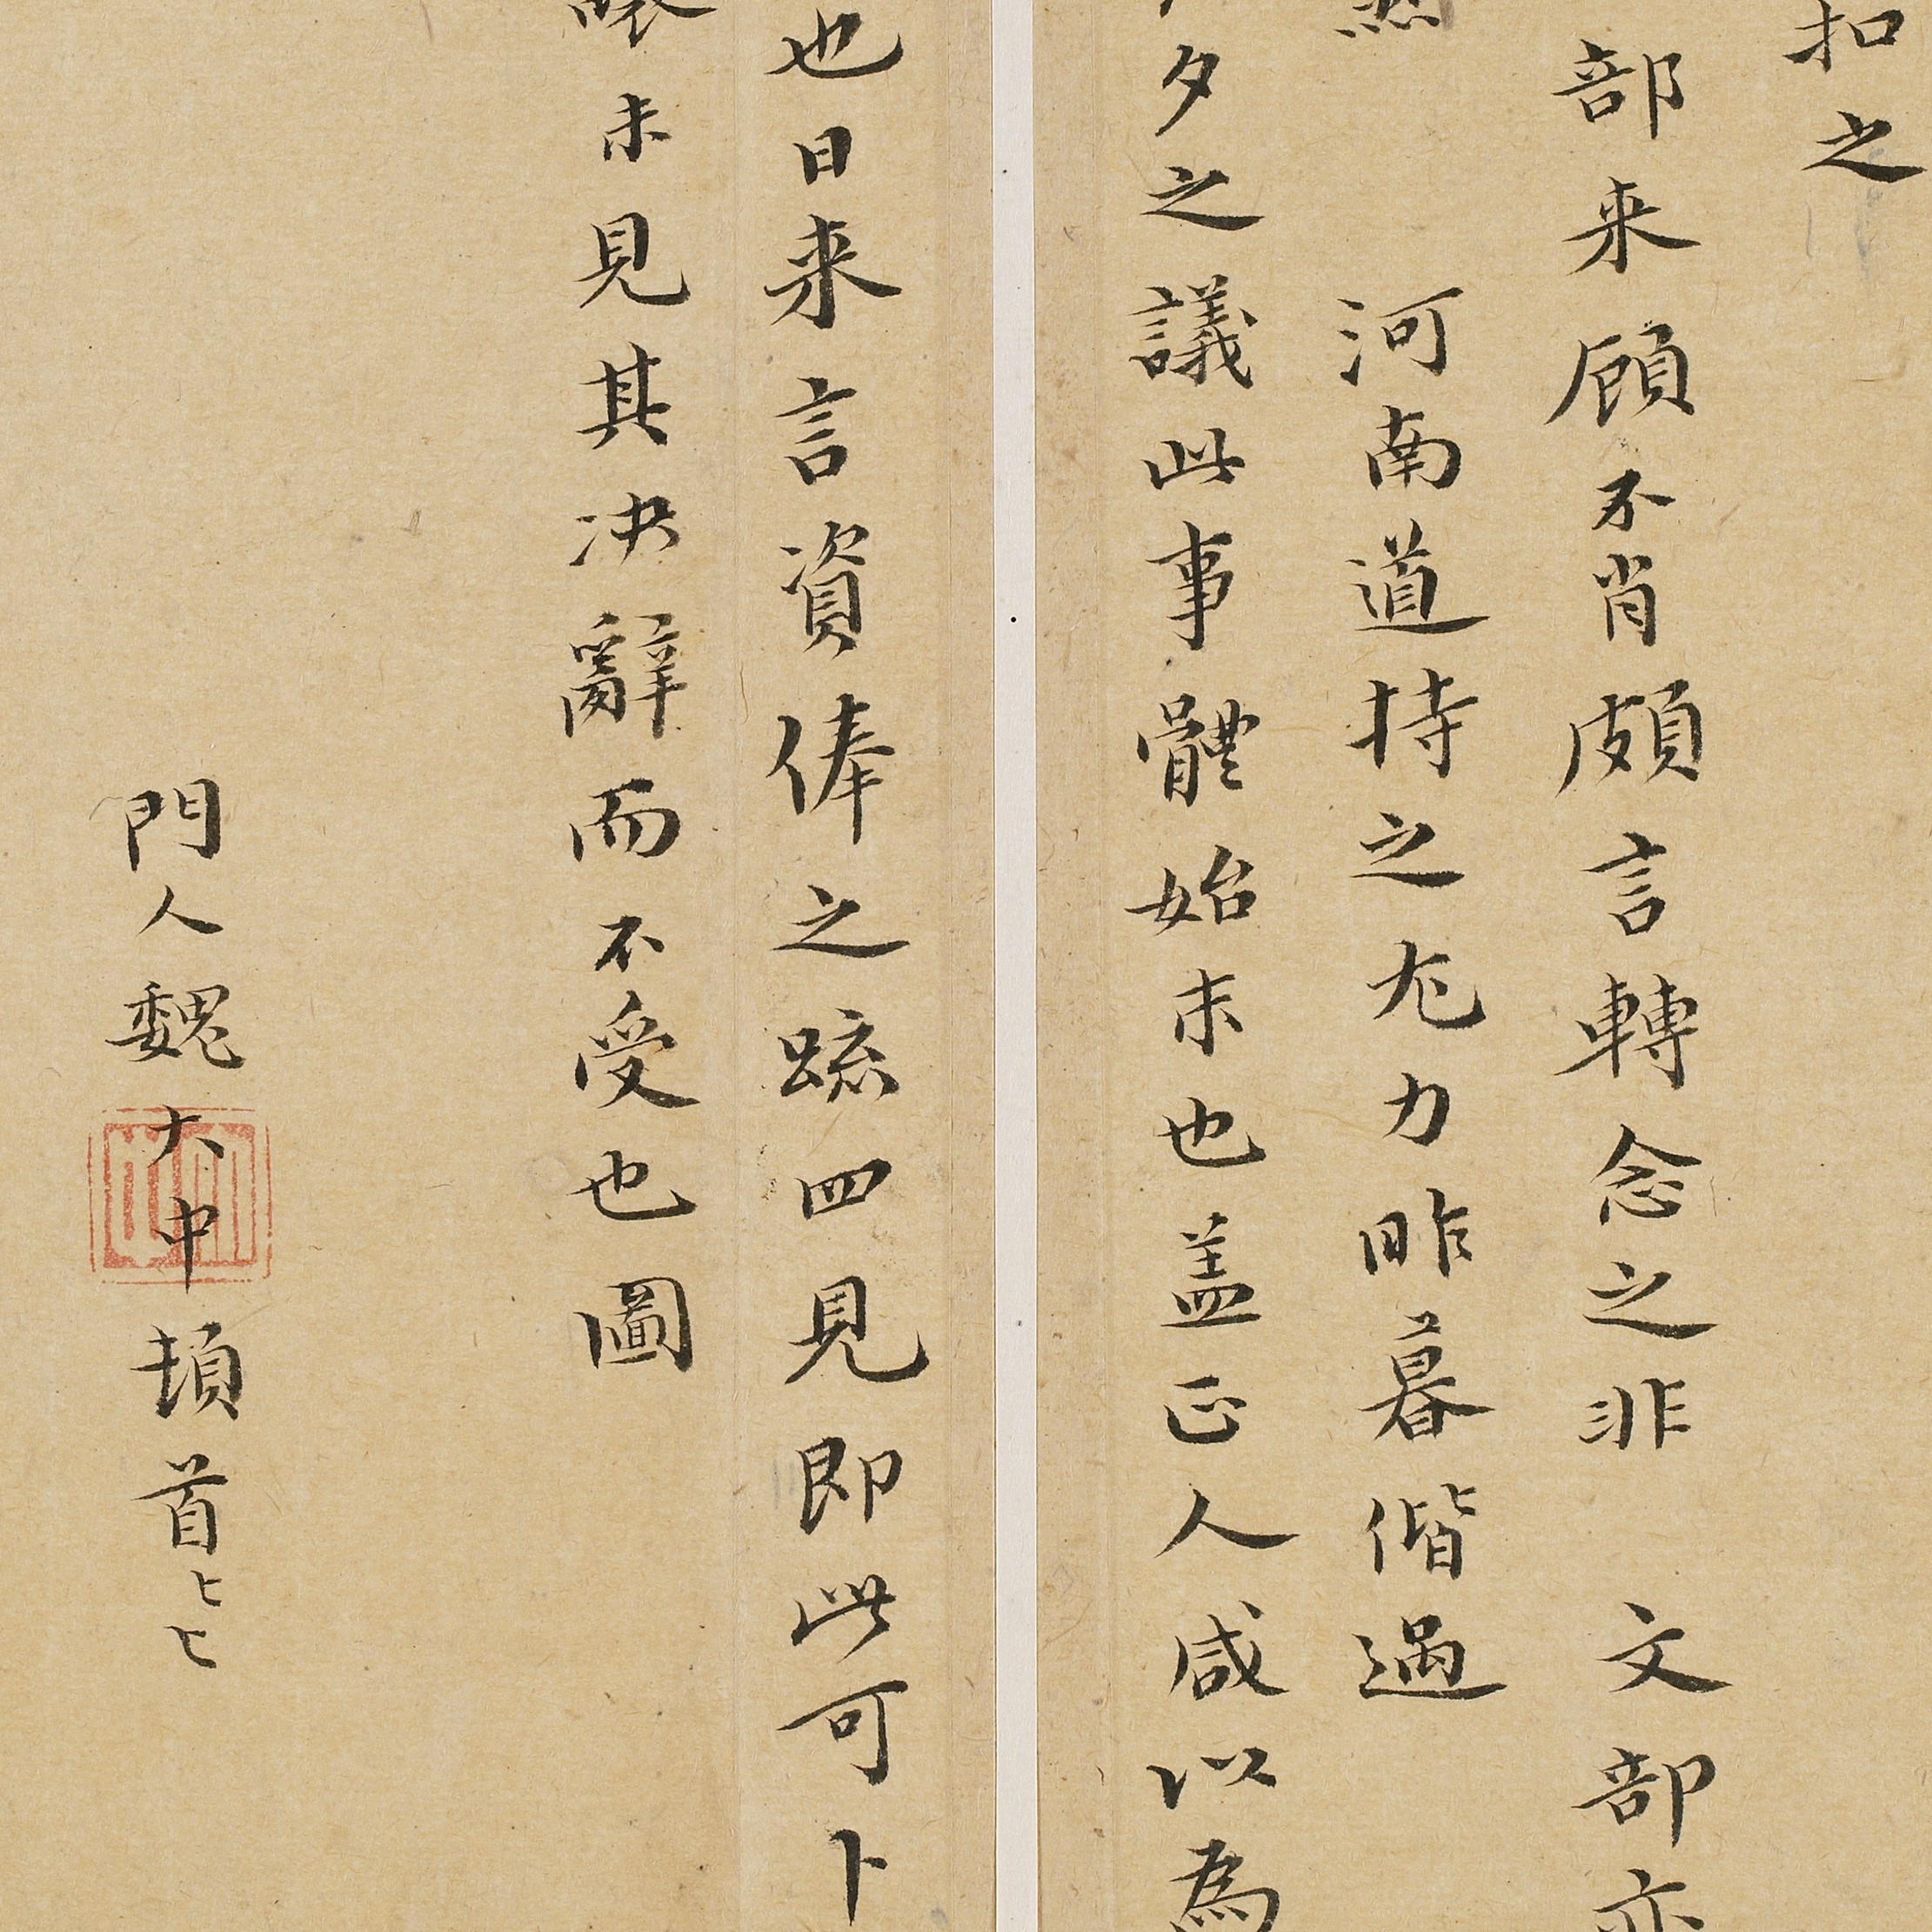 扣之
部来顧不肖頗言轉念之非 文部亦
河南道持之尤力昨暮偕過
夕之議此事體始末也盖正人咸以為
也日来言資俸之疏四見即此可卜
未見其决辭而不受也圖
門人魏大中頓首〻〻